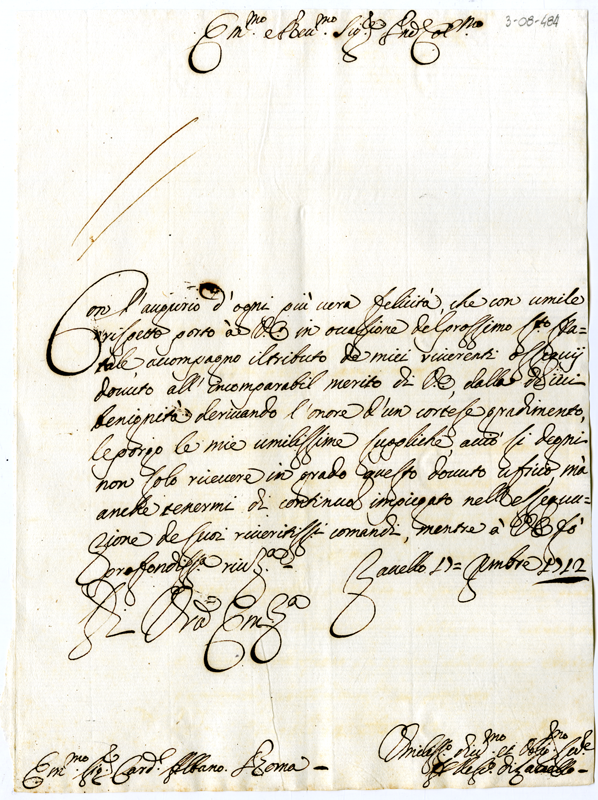 Em.mo e Rev.mo Sig.re Prõn Col.mo
3-08-484
Con l'augurio d'ogni più vera felicità, che con umile
rispetto porto à VE in occasione del prossimo S.to Na=
tale accompagno il tributo de miei riverenti ossequij
dovuto all'incomparabil merito di VE, dalla di cui
benignità derivando l'onore d'un cortese gradimento,
le porgo le mie umilissime suppliche, acciò si degni
non solo ricevere in grado questo dovuto uffico, mà
anche tenermi di continuo impiegato nell'essequu=
zione de suoi riveritissi comandi, mentre à VE fò
profondiss.a riv.za
Lavello 17= Xmbre 1712
Di V.ra Em.za
Em.mo Sig.r Card.l Albano. Roma=
Umiliss.o Div.mo et Oblig.mo Ser.e
Il Vesc.o di Lavello=